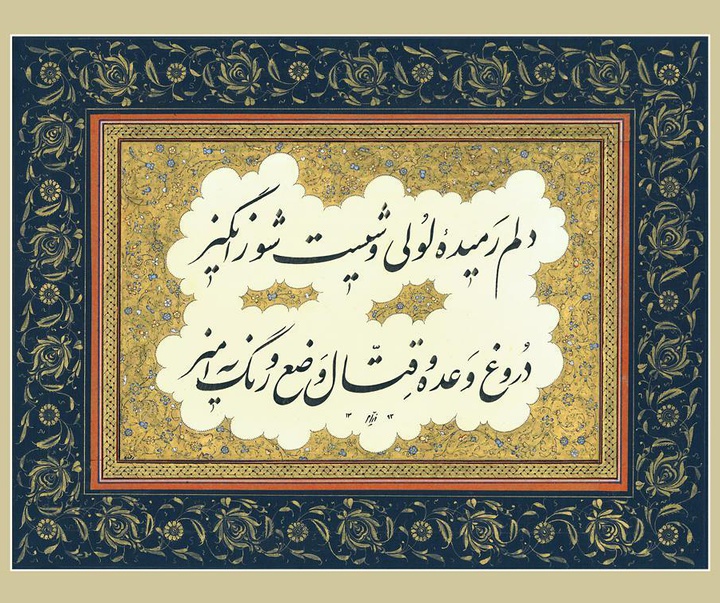 دلم رَمیدهٔ لُولی وشیست شورانگیز
دُروغ وَعده و قِتّال وَضع و رنگ آمیز
۱۳ ۹۳